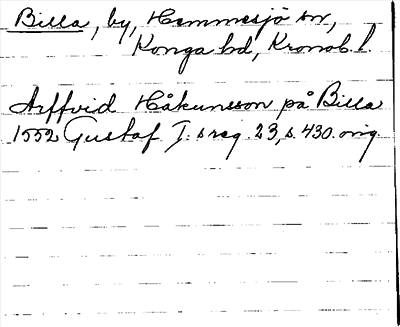 Billa, by, Hemmesjö sn,
Konga hd, Kronob. l.
Arffvid Håkunsson på Billa
1552 Gustaf I:s reg. 23, s. 430. orig.